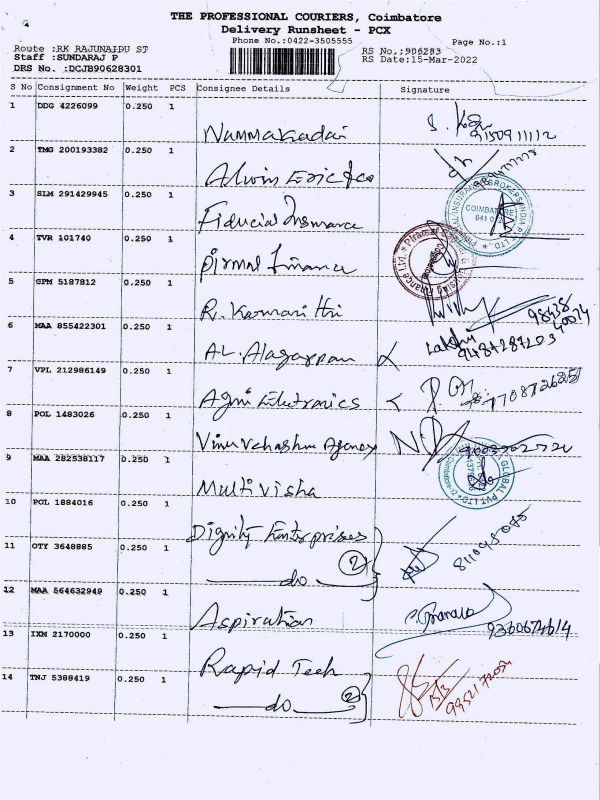 THE PROFESSIONAL COURIERS, Coimbatore
Delivery Runsheet - PCX
Phone No.:0422-3505555
Page No.:1
Route :RK RAJUNAIDU ST
RS No.:906283
Staff :SUNDARAJ P
RS Date:15-Mar-2022
DRS No. :DCJB90628301
S No Consignment No Weight PCS Consignee Details Signature
1 DDG 4226099 0.250 1
Nammakadai
9150911112
2 TMG 200193382 0.250 1
Alwin Eric & co
3 SLM 291429945 0.250 1
Fiducial Insurance
COIMBATORE
4 TVR 101740 0.250 1
Pirmal Finance
5 GPM 5187812 0.250 1
R. Kumari Hri
6 MAA 855422301 0.250 1
AL. Alagappan
Lakshmi
9487287203
7 VPL 212986149 0.250 1
Agni Electronics
8 POL 1483026 0.250 1
9 MAA 282538117 0.250 1
Multivisha
GLOBAL PVT LTD
10 POL 1884016 0.250 1
Dignity Enterprises
2
11 OTY 3648885 0.250 1
do
12 MAA 564632949 0.250 1
Aspiration
9360674614
13 IXM 2170000 0.250 1
Rapid Tech
14 TNJ 5388419 0.250 1
do
2